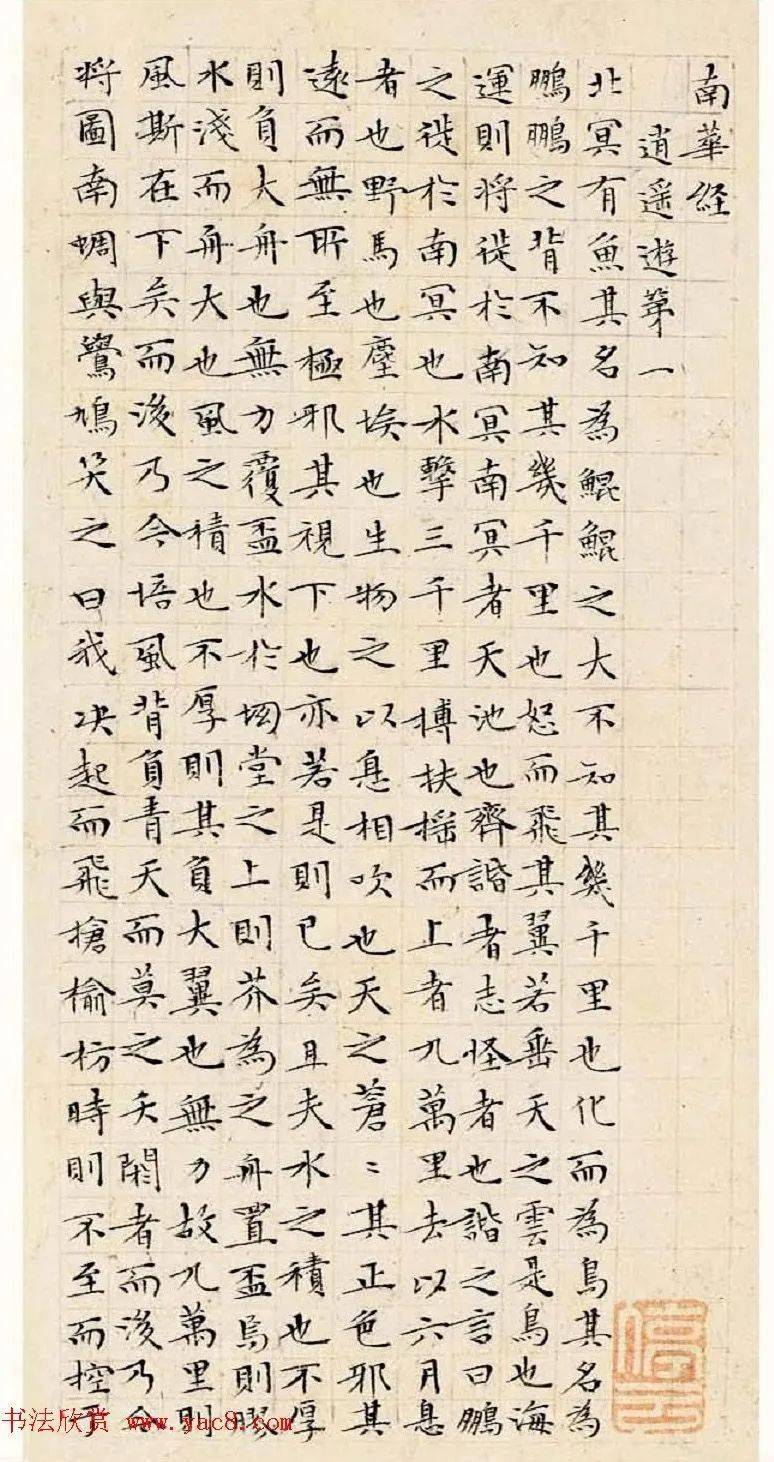 南華経
逍遥遊第一
北冥有魚其名為鯤鯤之大不知其幾千里也化而為鳥其名為
鵬鵬之背不知其幾千里也怒而飛其翼若垂天之雲是鳥也海
運則将徙於南冥南冥者天池也齊諧者志怪者也諧之言曰鵬
之徙於南冥也水擊三千里摶扶摇而上者九萬里去以六月息
者也野馬也塵埃也生物之以息相吹也天之蒼〻其正色邪其
遠而無所至極邪其視下也亦若是則已矣且夫水之積也不厚
則負大舟也無力覆盃水於坳堂之上則芥為之舟置盃焉則膠
水淺而舟大也風之積也不厚則其負大翼也無力故九萬里則
風斯在下矣而後乃今培風背負青天而莫之夭閼者而後乃今
将圖南蜩與鷽鳩笑之曰我决起而飛搶榆枋時則不至而控于
书法欣赏 www.yac8.com